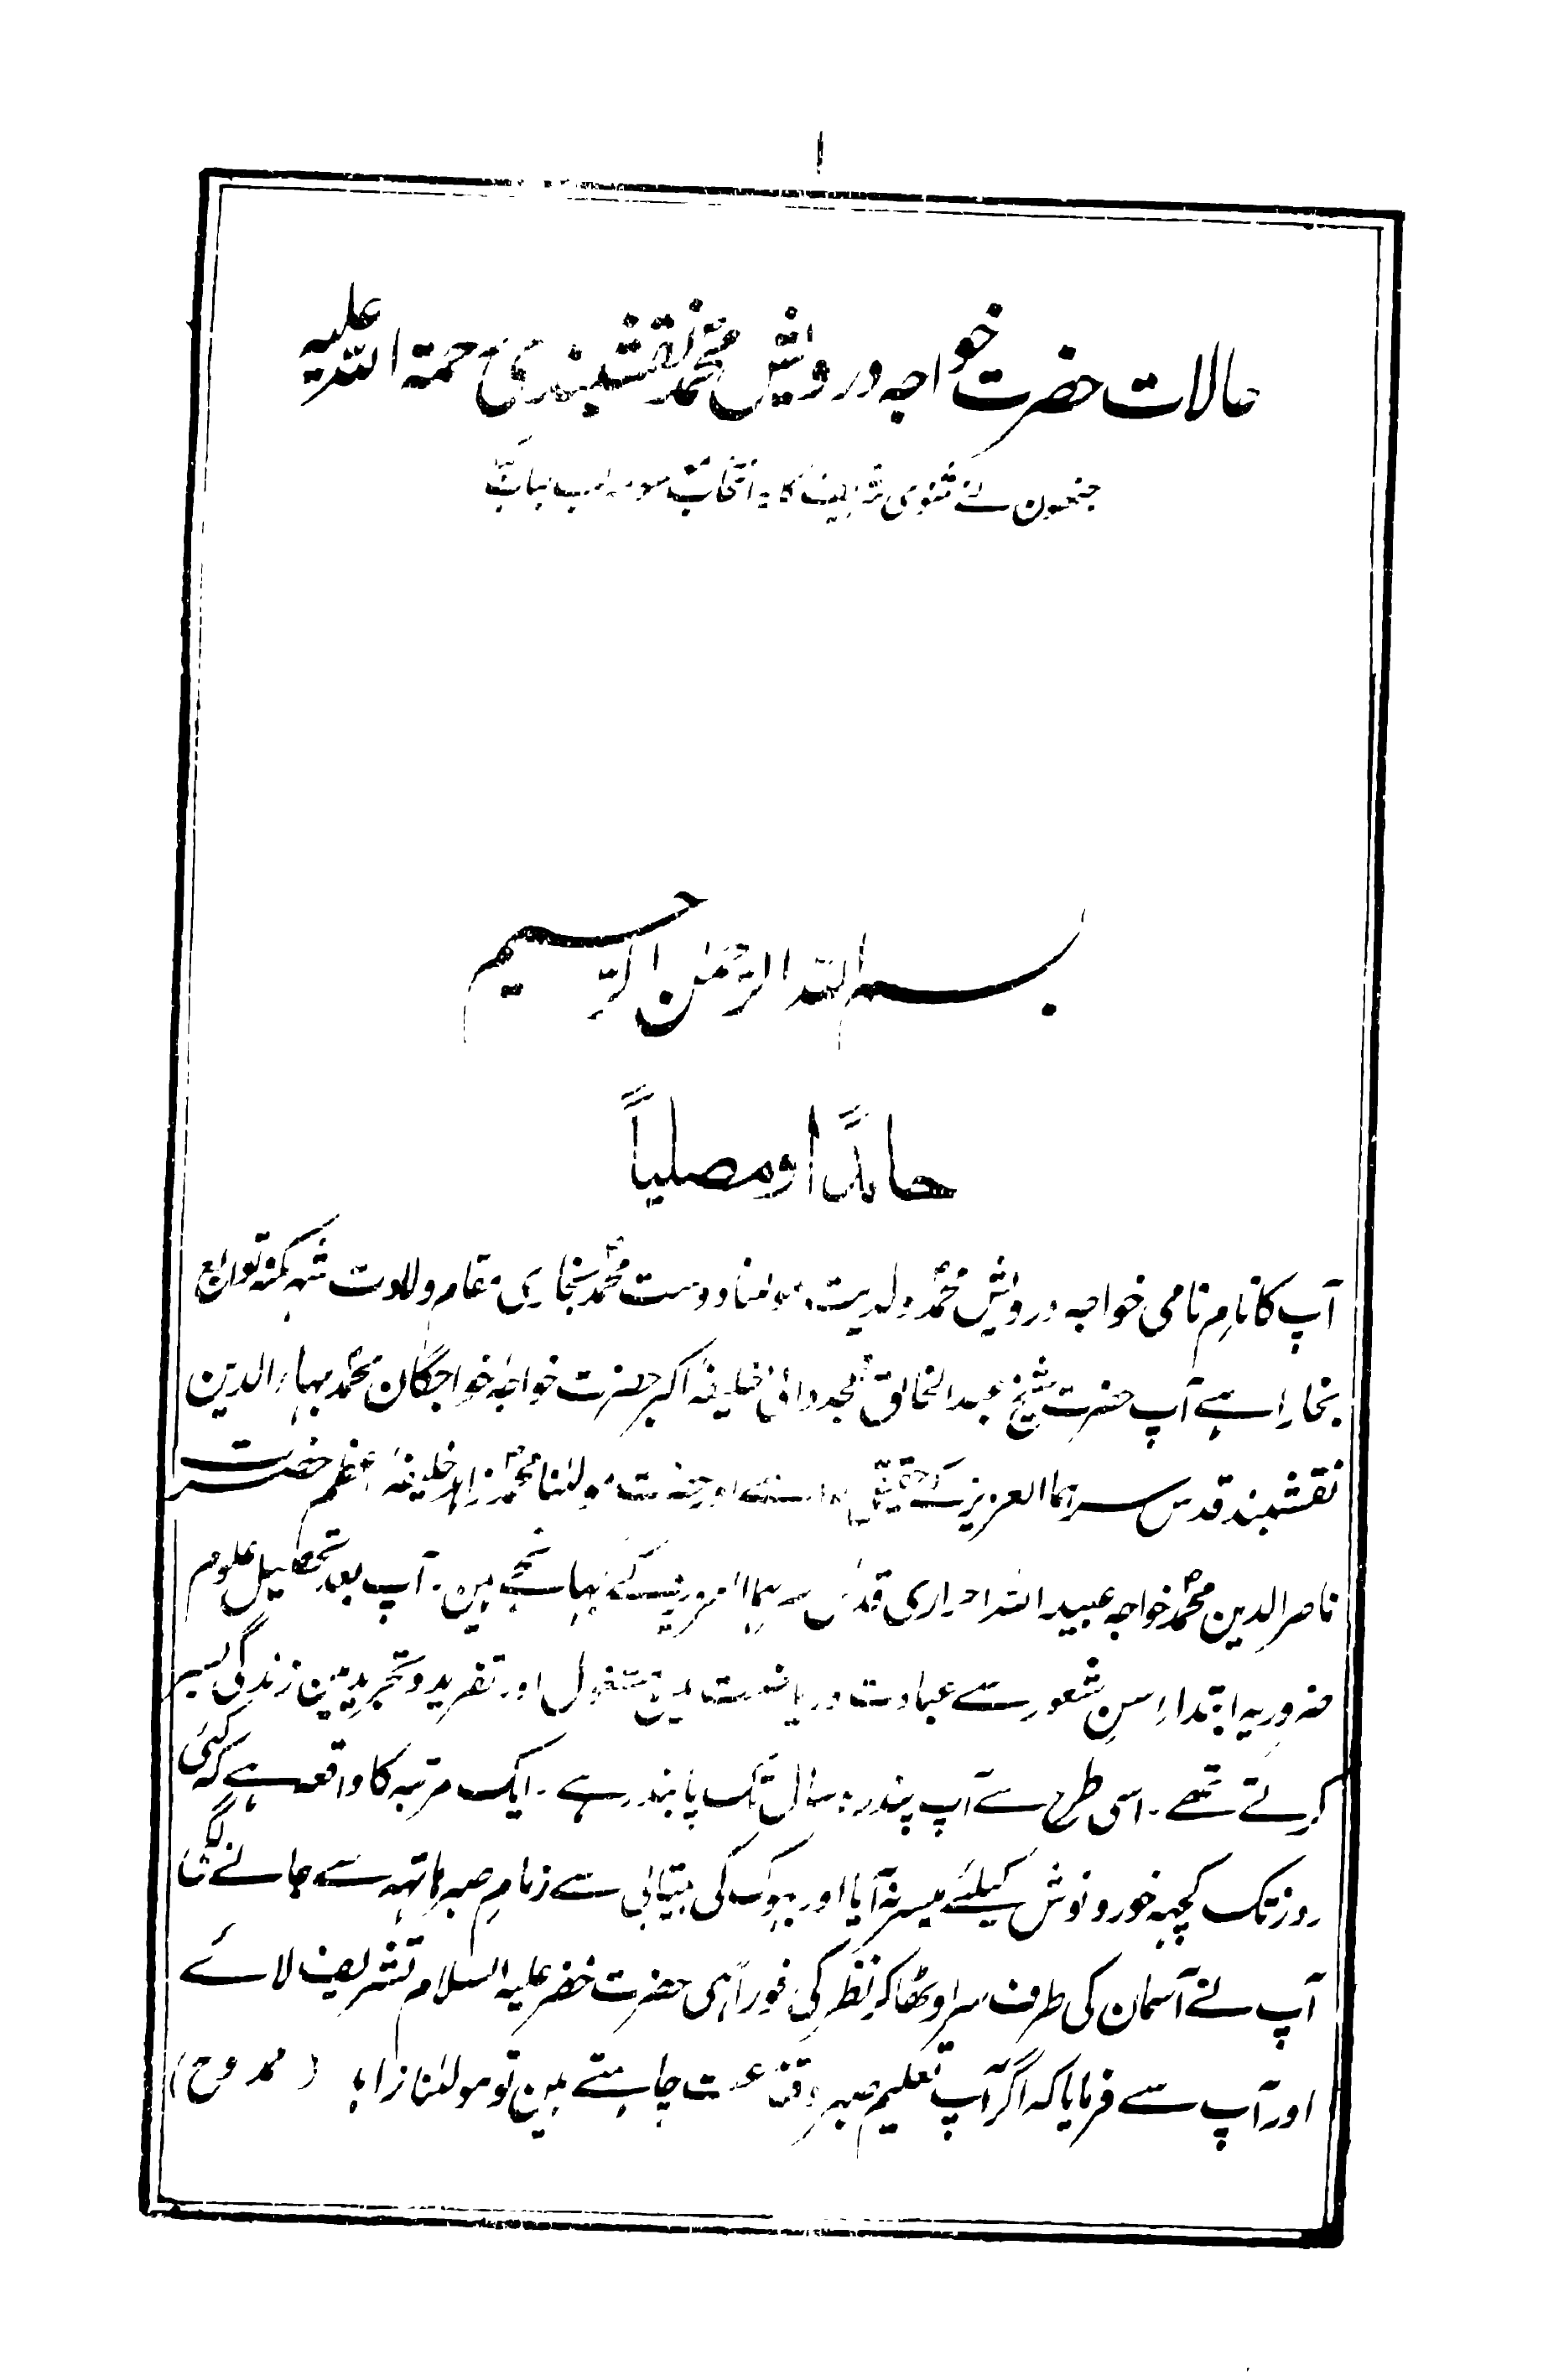 ۱
حالات حضرت خواجہ درویش محمد نقشبندی رحمۃ اللہ علیہ
جنھون نے مثنوی شریف کا یہ انتخاب موسوم لب لباب
بسم اللہ الرحمٰن الرحیم
حامدًا ومصلیاً
آپ کا نام نامی خواجہ درویش محمد ولدیت مولٰنا دوست محمد بخاری مقام ولادت شہر کمنہ توابع
بخارا ہے آپ حضرت شیخ عبدالخالق غجدوانی خلیفۂ اکبر حضرت خواجۂ خواجگان محمد بہاءالدین
نقشبند قدس سرہما العزیز کے حقیقی اور حضرت مولٰنا محمد زاہد خلیفۂ اعظم حضرت
ناصرالدین محمد خواجہ عبیداللہ احراری قدس سرہما العزیز کے بہانجے ہین۔ آپ بعد تحصیل علوم
ضروریہ ابتداء سن شعور سے عبادت و ریاضت مین مشغول اور تفرید و تجرید مین زندگی بسر
کرتے تھے۔ اسی طرح سے آپ پندرہ سال تک پابند رہے۔ ایک مرتبہ کا واقعہ ہے کہ کئی
روز تک کچہہ خور و نوش کیلئے میسر نہ آیا اور بہوک کی بیتابی سے زمام صبر ہاتہہ سے جانے لگا
آپ نے آسمان کی طرف سر اوٹھا کر نظر کی فوراً ہی حضرت خضر علیہ السلام تشریف لائے
اور آپ سے فرمایا کہ اگر آپ تعلیم صبر و قناعت چاہتے ہین تو مولٰنا زاہد (ممدوح)